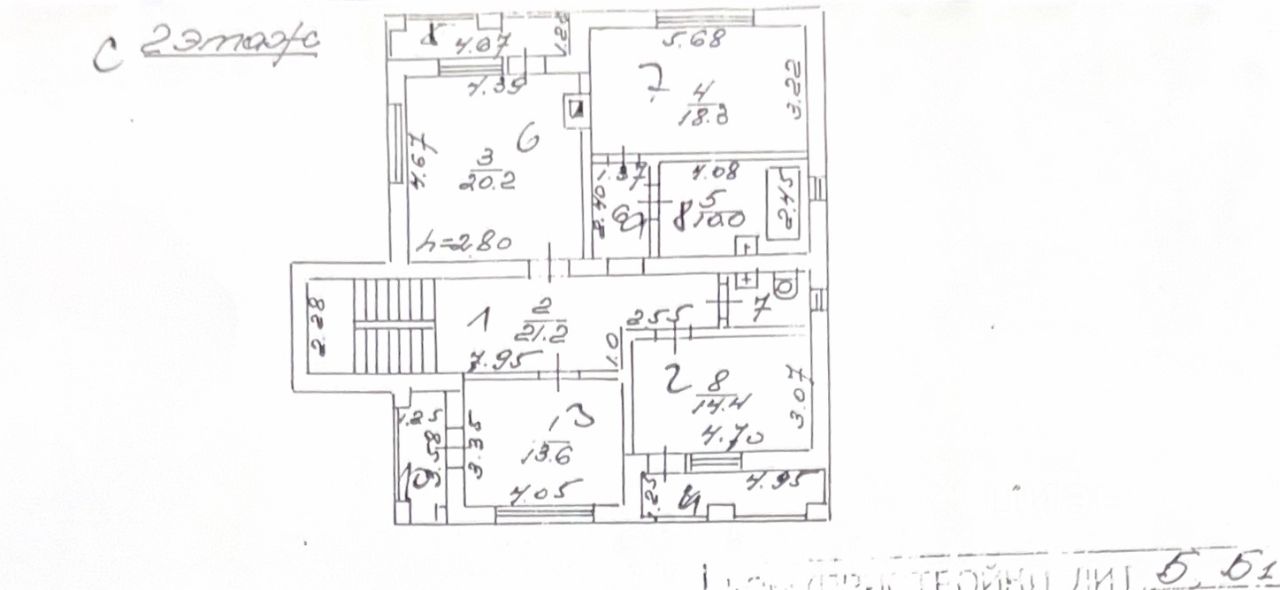 2 этаж
с
4.07
1.25
5.68
7
4
18.3
3.22
4.39
6
3
20.2
4.67
h=2.80
1.37
2.40
4.08
8
5
10.0
2.45
2.28
1
2
21.2
7.95
1.0
2.55
7
2
8
14.4
3.07
4.70
1.25
3.58
3.35
3
1
13.6
4.05
1.25
4
4.95
ЛИТ. Б, Б1